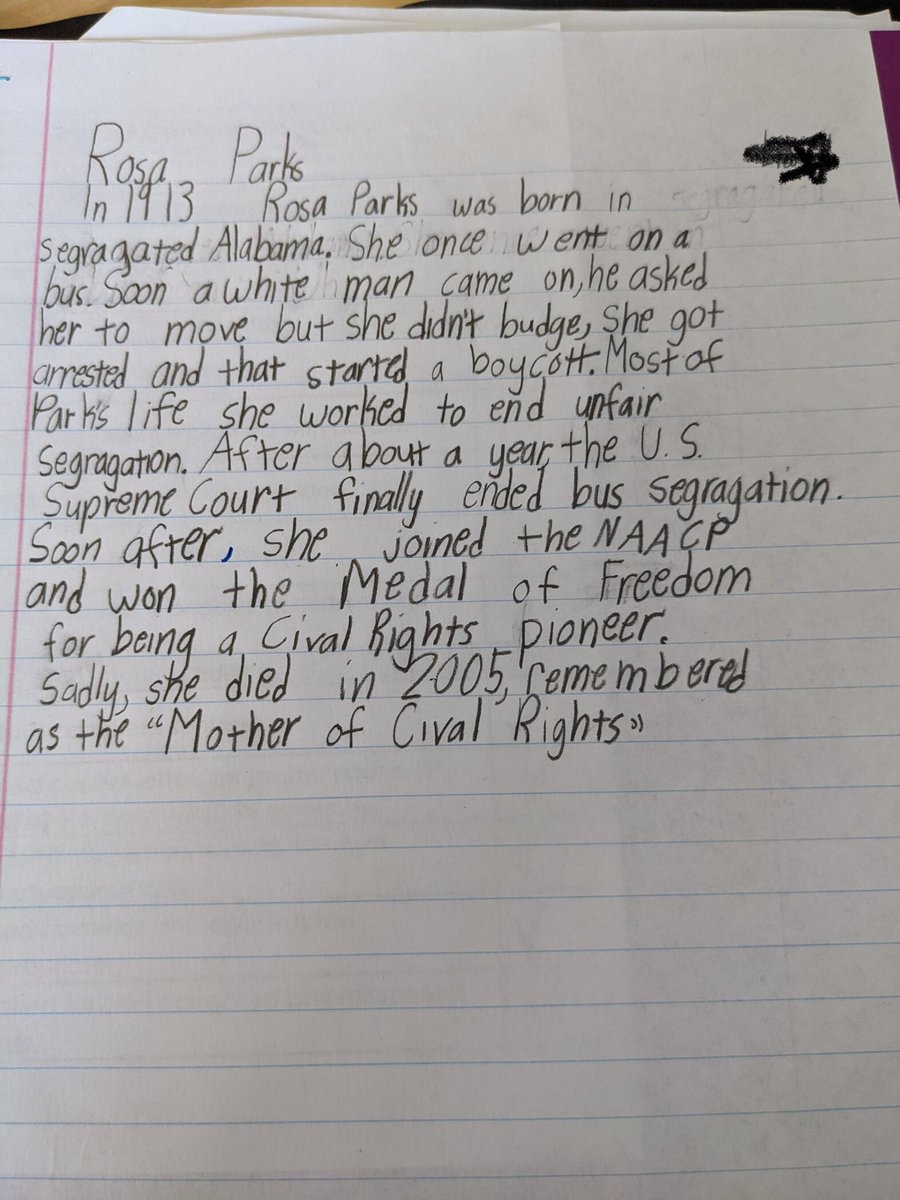 Rosa Parks
In 1913 Rosa Parks was born in
segragated Alabama. She once went on a
bus. Soon a white man came on, he asked
her to move but she didn't budge, She got
arrested and that started a boycott. Most of
Park's life she worked to end unfair
segragation. After about a year, the U.S.
Supreme Court finally ended bus segragation.
Soon after, she joined the NAACP
and won the Medal of Freedom
for being a Cival Rights pioneer.
Sadly, she died in 2005, remembered
as the “Mother of Cival Rights”